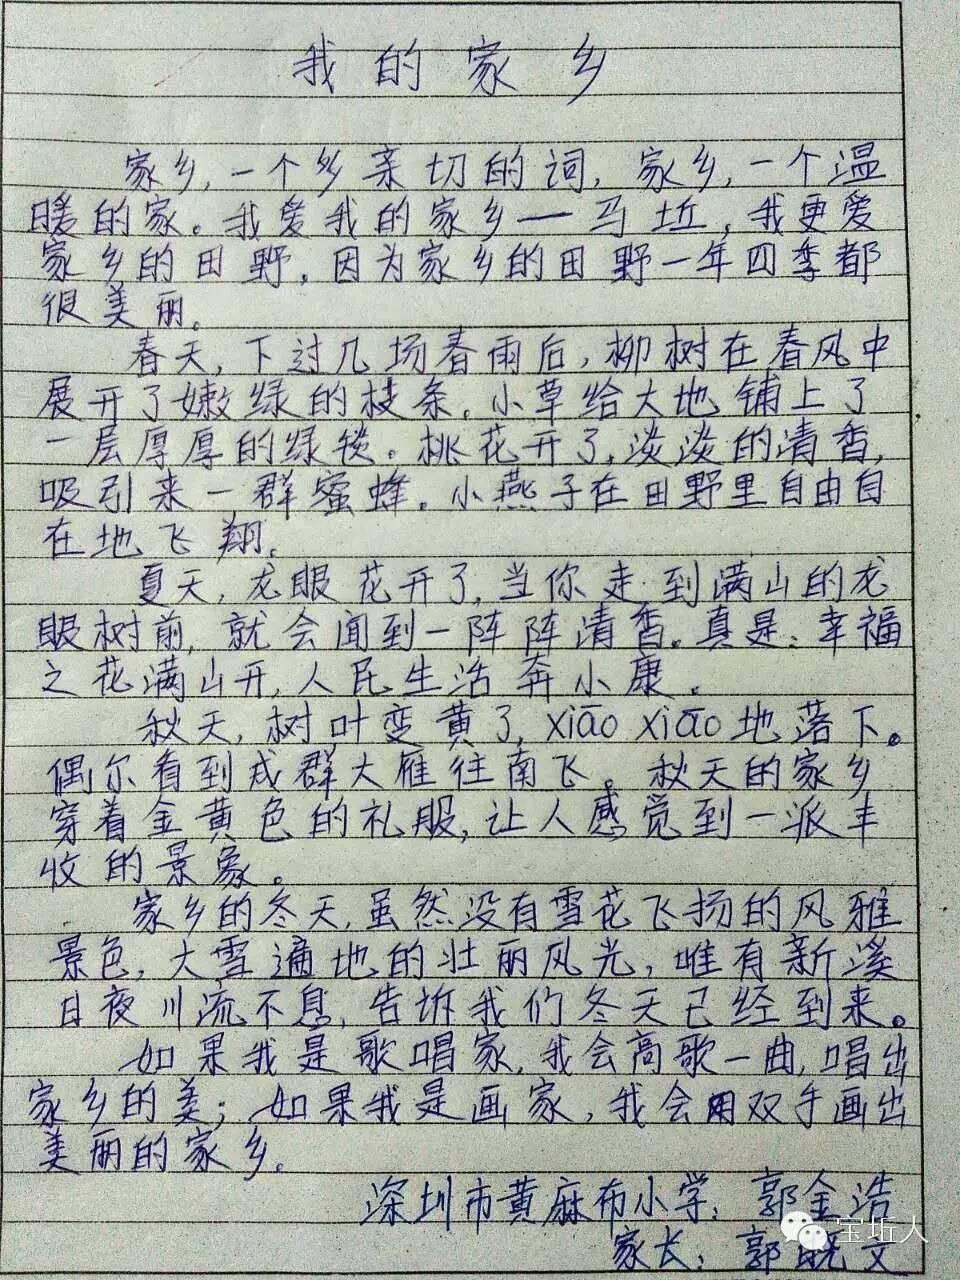 我的家乡
家乡,一个多亲切的词,家乡,一个温
暖的家。我爱我的家乡——马坵,我更爱
家乡的田野,因为家乡的田野一年四季都
很美丽。
春天,下过几场春雨后,柳树在春风中
展开了嫩绿的枝条。小草给大地铺上了
一层厚厚的绿毯。桃花开了,淡淡的清香,
吸引来一群蜜蜂。小燕子在田野里自由自
在地飞翔。
夏天,龙眼花开了,当你走到满山的龙
眼树前,就会闻到一阵阵清香。真是:幸福
之花满山开,人民生活奔小康。
秋天,树叶变黄了,xiāo xiāo地落下。
偶尔看到成群大雁往南飞。秋天的家乡
穿着金黄色的礼服,让人感觉到一派丰
收的景象。
家乡的冬天,虽然没有雪花飞扬的风雅
景色,大雪遍地的壮丽风光,唯有新溪
日夜川流不息,告诉我们冬天已经到来。
如果我是歌唱家,我会高歌一曲,唱出
家乡的美;如果我是画家,我会用双手画出
美丽的家乡。
深圳市黄麻布小学:郭金浩
家长:郭晓文
宝坵人